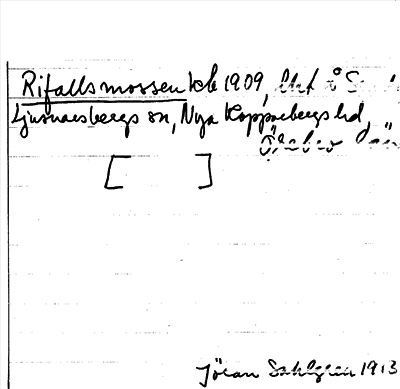 Rifallsmossen kb 1909,
Ljusnarsbergs sn, Nya Kopparbergs hd,
Örebro län
[ ]
Jöran Sahlgren 1913